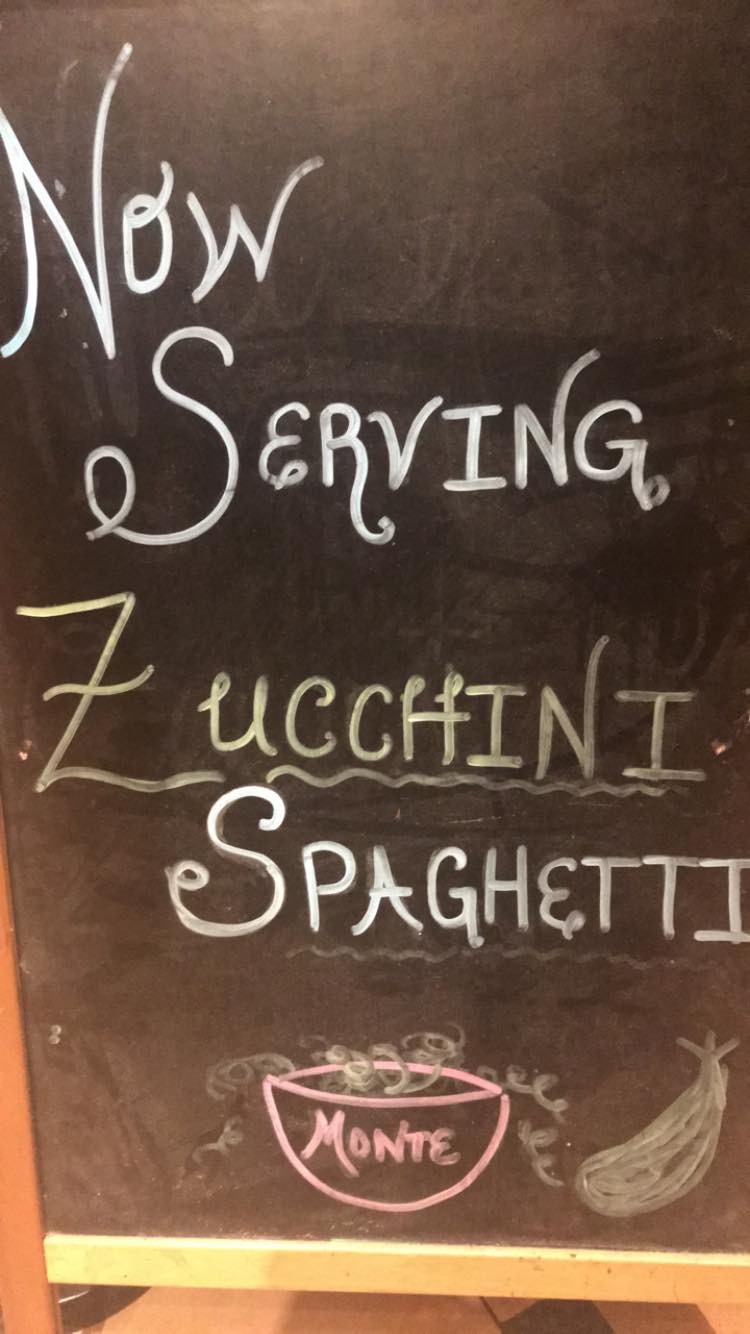 Now
SERVING
ZUCCHINI
SPAGHETTI
MONTE